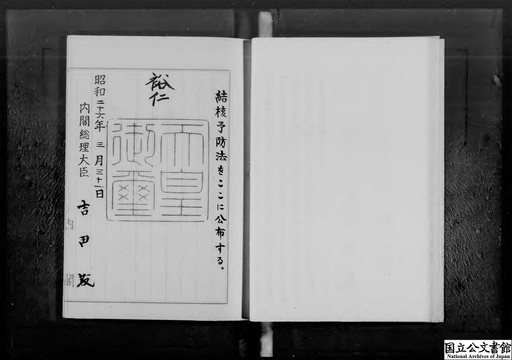 結核予防法をここに公布する。
裕仁
天皇
御璽
昭和二十六年三月三十一日
内閣総理大臣 吉田茂
内閣
国立公文書館
National Archives of Japan